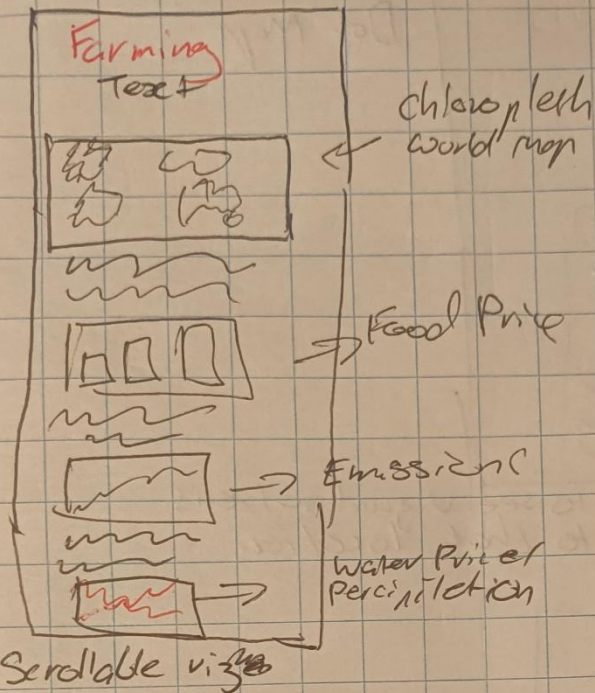 Farming
Text
Chloropleth
world map
Food Price
Emissions
Water Price/
Percipiletion
Scrollable